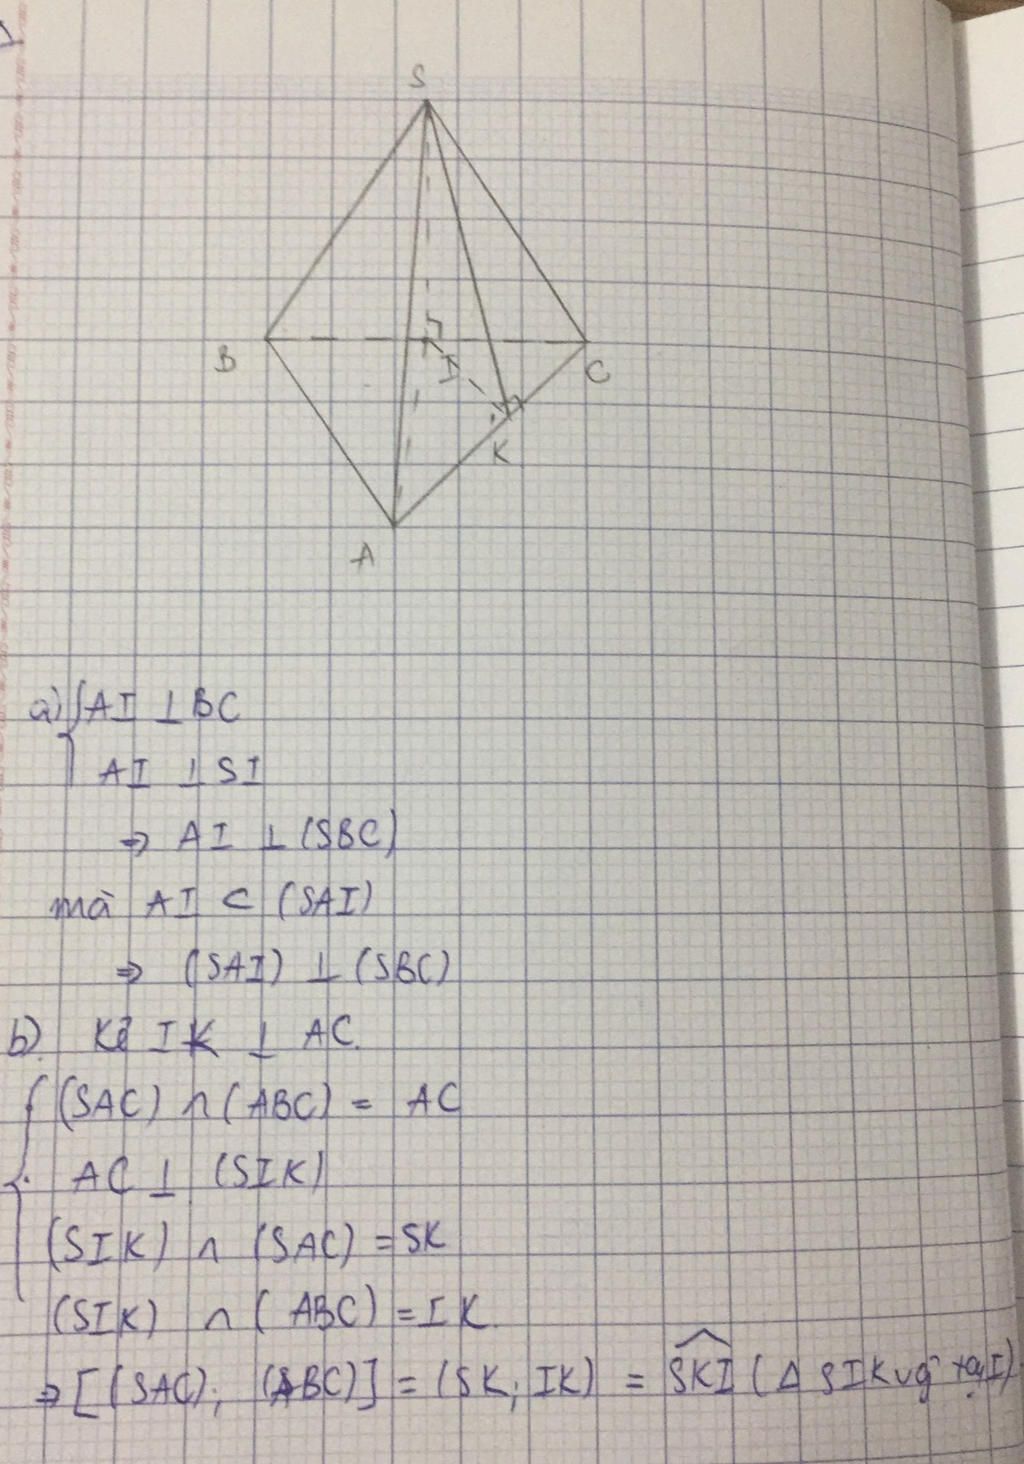 S
B
I
C
K
A
a) { AI ⊥ BC
AI ⊥ SI
⇒ AI ⊥ (SBC)
mà AI ⊂ (SAI)
⇒ (SAI) ⊥ (SBC)
b) Kẻ IK ⊥ AC.
{ (SAC) ∩ (ABC) = AC
AC ⊥ (SIK)
(SIK) ∩ (SAC) = SK
(SIK) ∩ (ABC) = IK.
⇒ [(SAC); (ABC)] = (SK; IK) = \widehat{SKI} (Δ SIK vg tại I)